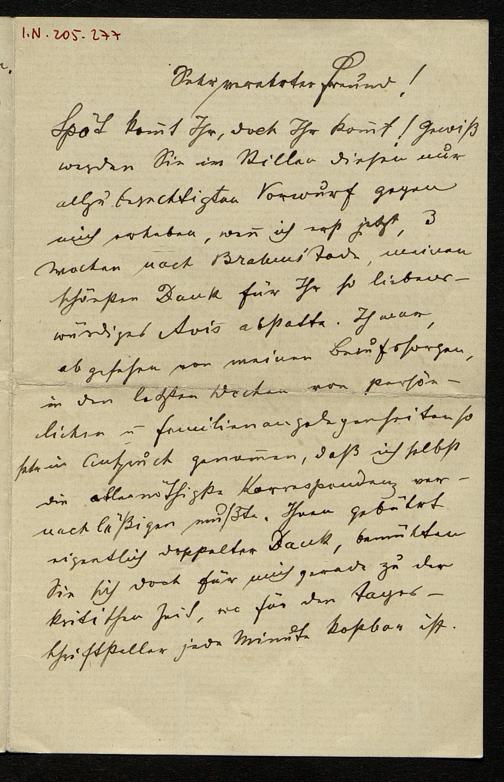 I.N. 205.277
Sehr verehrter Freund!
Spät kommt Ihr, doch Ihr kommt! Gewiß
werden Sie im Stillen diesen nur
allzu berechtigten Vorwurf gegen
mich erheben, wenn ich erst jetzt, 3
Wochen nach Brahms' Tode, meinen
schönsten Dank für Ihr so liebens-
würdiges Avis abstatte. Ich war,
abgesehen von meinen Berufssorgen,
in den letzten Wochen von persön-
lichen u Familienangelegenheiten so
sehr in Anspruch genommen, daß ich selbst
die allernöthigste Korrespondenz ver-
nachläßigen mußte. Ihnen gebührt
eigentlich doppelter Dank, bemühten
Sie sich doch für mich gerade zu der
kritischen Zeit, wo für den Tages-
schriftsteller jede Minute kostbar ist.